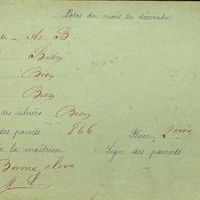 Notes du mois de décembre
e - A. B
Bien
Bien
Bien
des cahiers Bien
des points 866 Place 2ème
e la maîtresse Sign des parents
Bonne élève